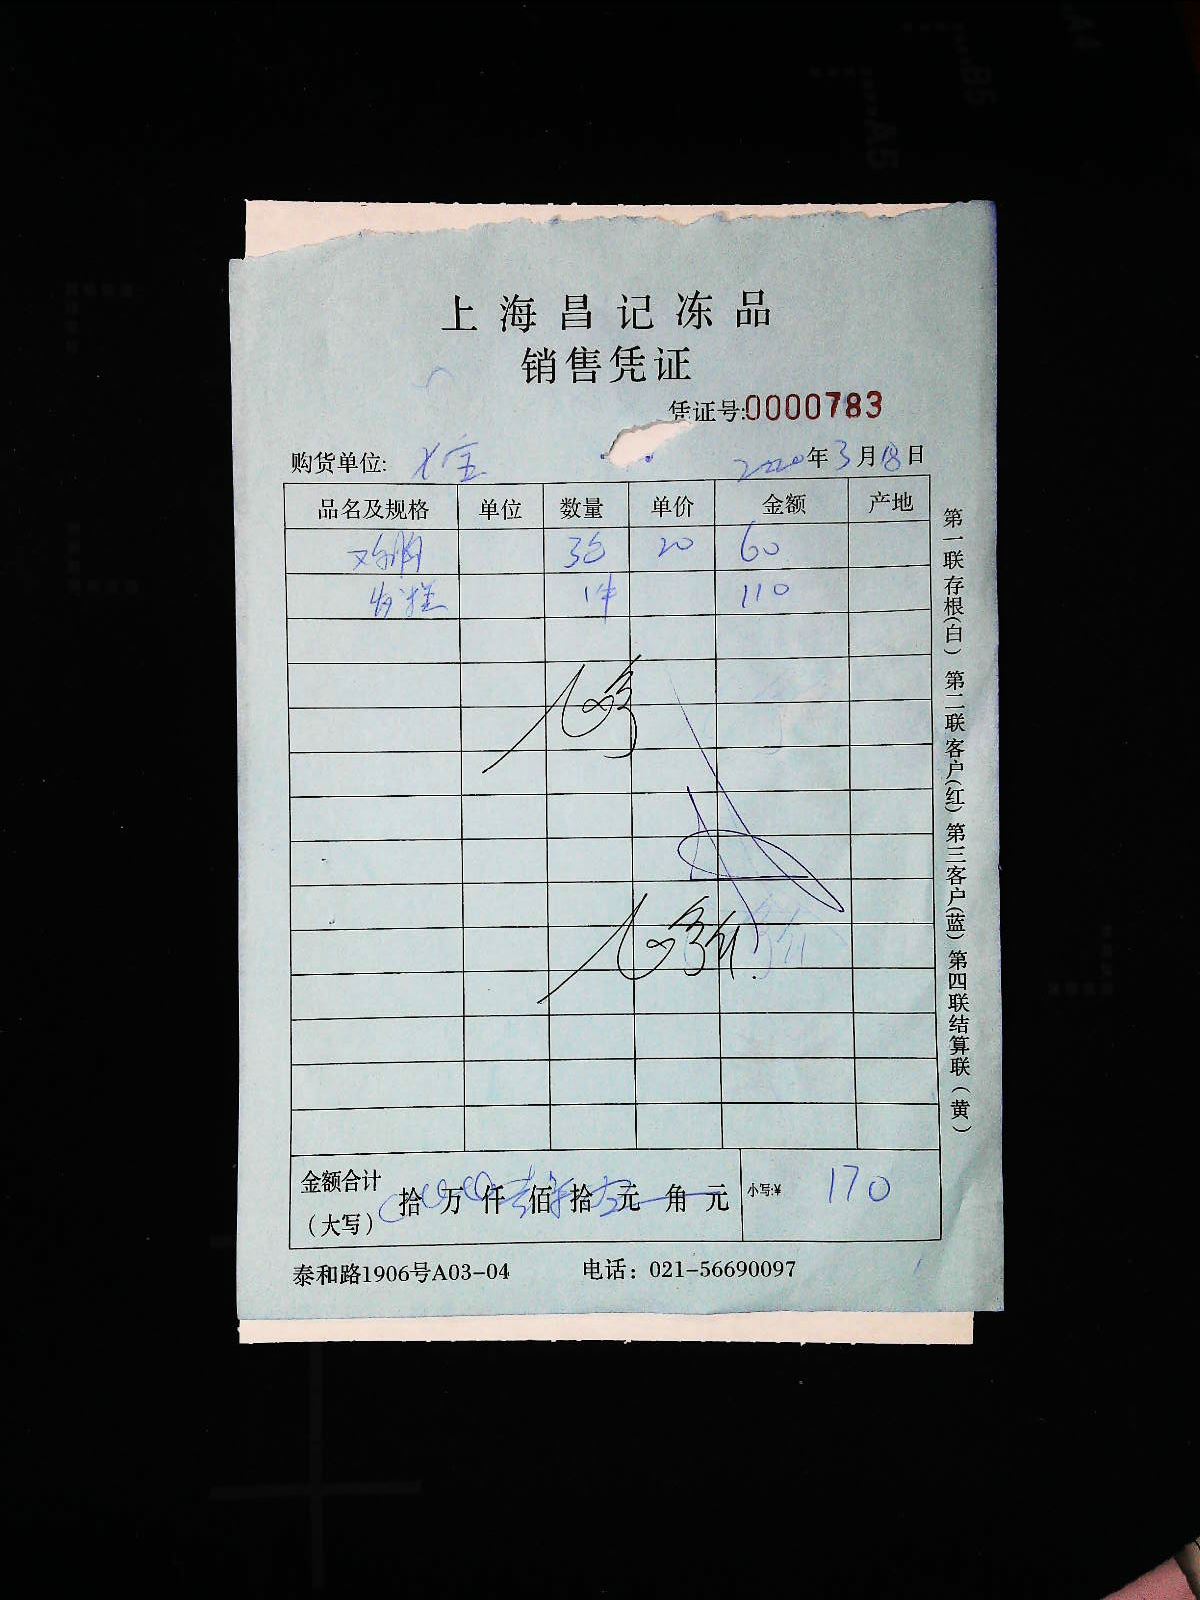 上海昌记冻品
销售凭证
凭证号:0000783
购货单位: 2020年3月18日
品名及规格 单位 数量 单价 金额 产地
鸡胸 3包 20 60
发糕 1件 110
金额合计(大写) 拾 万 仟 佰 拾 元 角 元 小写:¥ 170
泰和路1906号A03-04 电话：021-56690097
第一联存根(白) 第二联客户(红) 第三客户(蓝) 第四联结算联(黄)